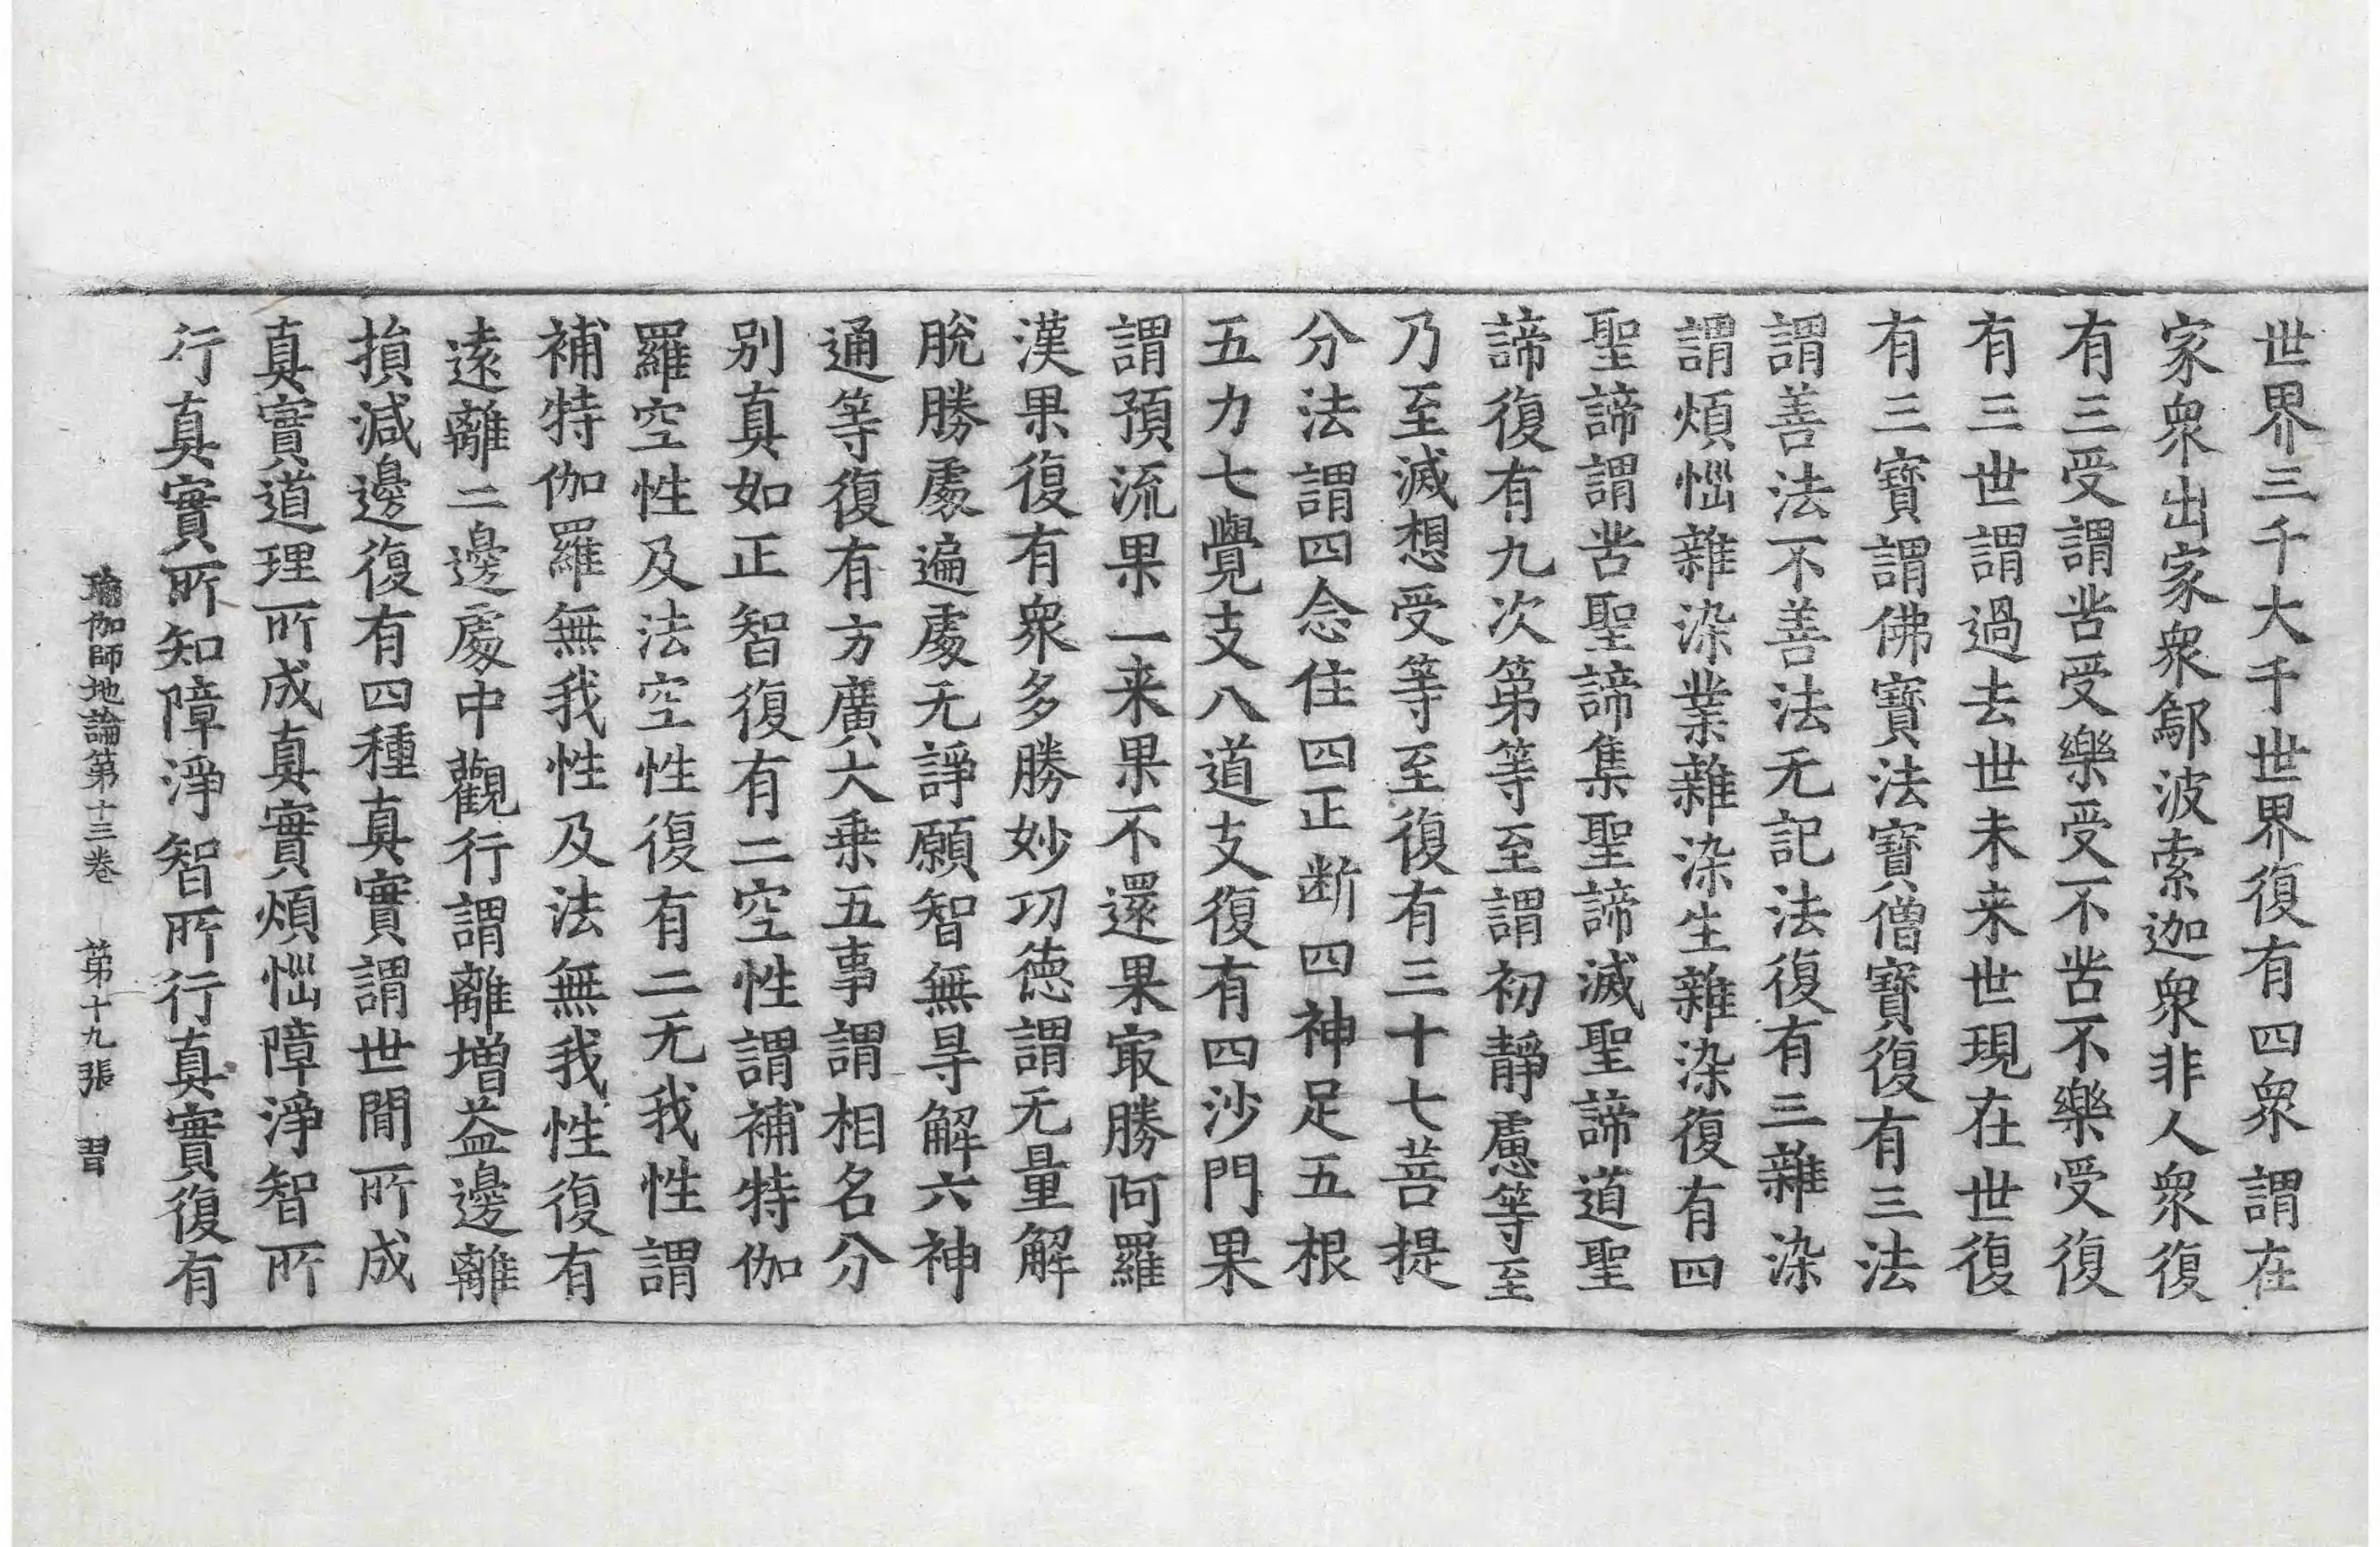 世界三千大千世界復有四衆謂在
家衆出家衆鄔波索迦衆非人衆復
有三受謂苦受樂受不苦不樂受復
有三世謂過去世未来世現在世復
有三寳謂佛寳法寳僧寳復有三法
謂善法不善法无記法復有三雜染
謂煩惱雜染業雜染生雜染復有四
聖諦謂苦聖諦集聖諦滅聖諦道聖
諦復有九次第等至謂初靜慮等至
乃至滅想受等至復有三十七菩提
分法謂四念住四正断四神足五根
五力七覺支八道支復有四沙門果
謂預流果一来果不還果㝡勝阿羅
漢果復有衆多勝妙功德謂无量解
脫勝處遍處无諍願智無㝵解六神
通等復有方廣大乗五事謂相名分
別真如正智復有二空性謂補特伽
羅空性及法空性復有二无我性謂
補特伽羅無我性及法無我性復有
遠離二邊處中觀行謂離增益邊離
損減邊復有四種真實謂世間所成
真實道理所成真實煩惱障淨智所
行真實所知障淨智所行真實復有
瑜伽師地論第十三卷 第十九張 習